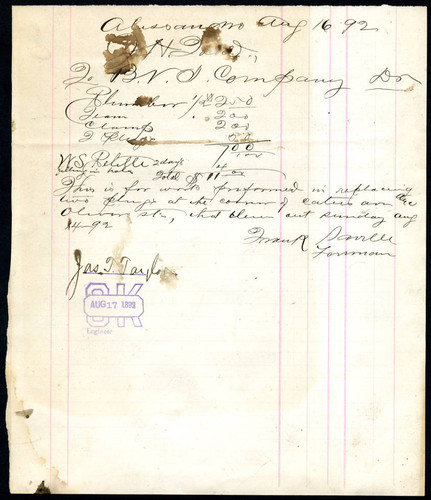 Alessandro Aug 16 92
To B.V.I. Company Dr
Plumber 1/2 $ 2 50
Team 2 00
Clamp 2 00
2 Plugs
7 00
W.S. 2 days 4 00
filling in hole Total $ 11 00
This is for work preformed in replacing the
two plugs at the corner of and
Olive st., that blew out sunday aug
14-92
Frank Saville
Forman
Jas. T. Taylor
OK
AUG 17 1892
Engineer